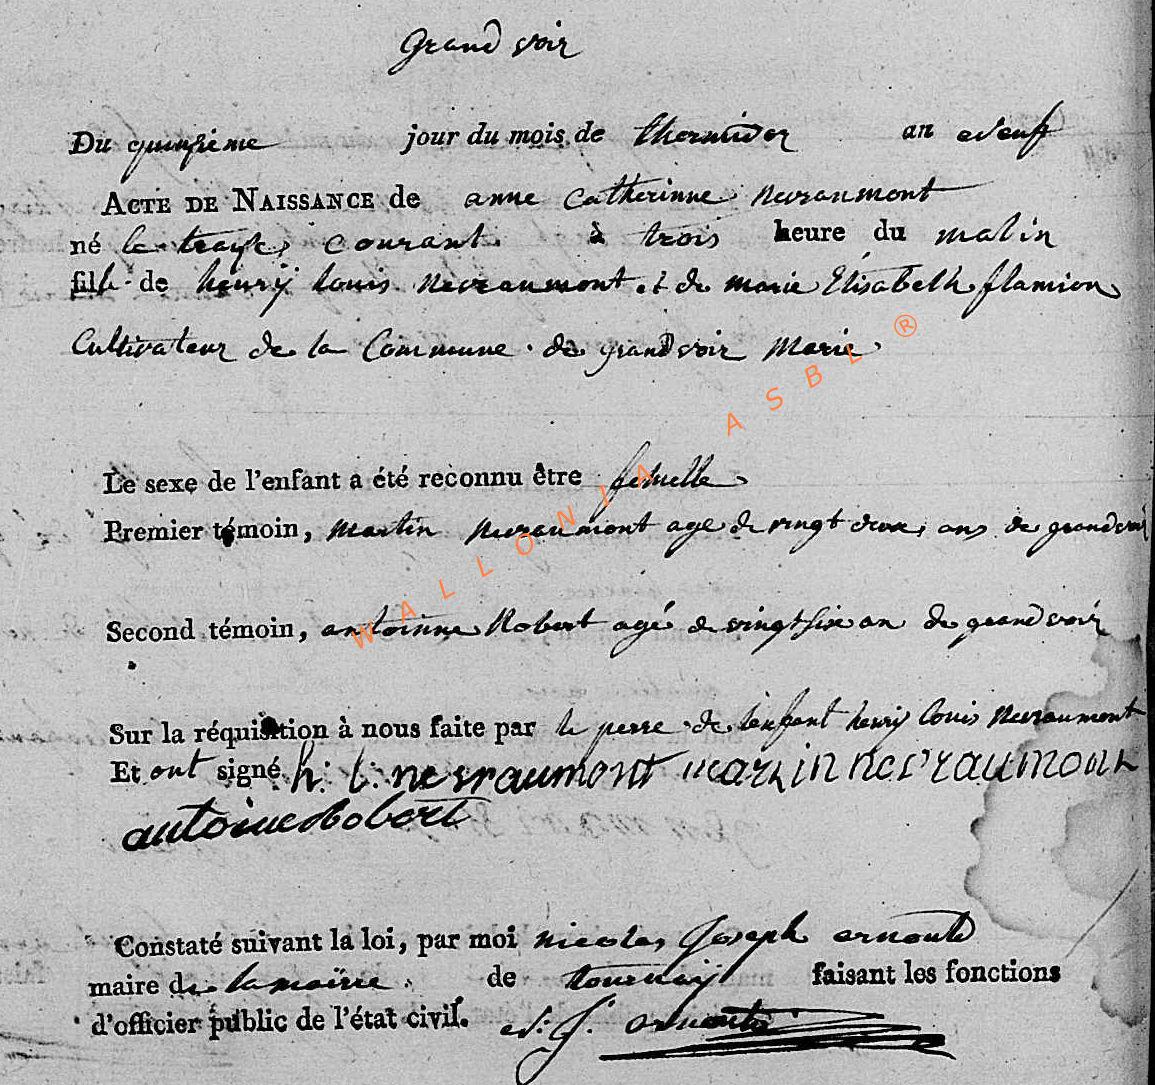 Grand voir
Du quinsieme jour du mois de thermidor an neuf
ACTE DE NAISSANCE de anne Catherinne nevraumont
né le treize courant à trois heure du matin
fille de henrÿ louis Nevraumont et de marie Elisabeth flamion
Cultivateur de la Commune de grandvoir Marié
Le sexe de l'enfant a été reconnu être femelle
Premier témoin, martin nevraumont age de vingt deux ans de grandvoir
Second témoin, antoinne Robert agé de vingt six an de grandvoir
Sur la réquisition à nous faite par le perre de lenfant henri louis Nevraumont
Et ont signé h: l: nevraumont martin nevraumont
antoine Robert
Constaté suivant la loi, par moi nicolas Joseph arnould
maire de la mairie de tournaÿ faisant les fonctions
d'officier public de l'état civil. N: J. arnould
WALLONIA ASBL ®